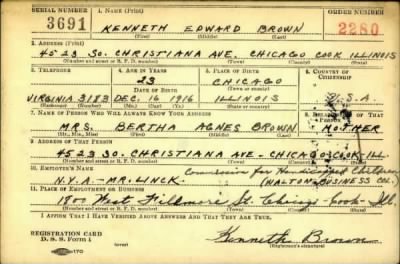 SERIAL NUMBER 1. NAME (Print) ORDER NUMBER
3691 KENNETH EDWARD BROWN 2280
(First) (Middle) (Last)
2. ADDRESS (Print)
4523 SO. CHRISTIANA AVE. CHICAGO COOK ILLINOIS
(Number and street or R. F. D. number) (Town) (County) (State)
3. TELEPHONE 4. AGE IN YEARS 5. PLACE OF BIRTH 6. COUNTRY OF CITIZENSHIP
23 CHICAGO
DATE OF BIRTH (Town or county)
VIRGINIA 3183 DEC. 16 1916 ILLINOIS U.S.A.
(Exchange) (Number) (Mo.) (Day) (Yr.) (State or country)
7. NAME OF PERSON WHO WILL ALWAYS KNOW YOUR ADDRESS 8. RELATIONSHIP OF THAT PERSON
MRS. BERTHA AGNES BROWN MOTHER
(Mr., Mrs., Miss) (First) (Middle) (Last)
9. ADDRESS OF THAT PERSON
4523 SO. CHRISTIANA AVE - CHICAGO - COOK ILL
(Number and street or R. F. D. number) (Town) (County) (State)
10. EMPLOYER'S NAME Commission for Handicapped Children
N.Y.A. - MR. LINCK (WALTON BUSINESS COL.)
11. PLACE OF EMPLOYMENT OR BUSINESS
1900 West Fillmore St. Chicago - Cook - Ill.
(Number and street or R. F. D. number) (Town) (County) (State)
I AFFIRM THAT I HAVE VERIFIED ABOVE ANSWERS AND THAT THEY ARE TRUE.
REGISTRATION CARD
D. S. S. Form 1 Kenneth Brown
(Registrant's signature)